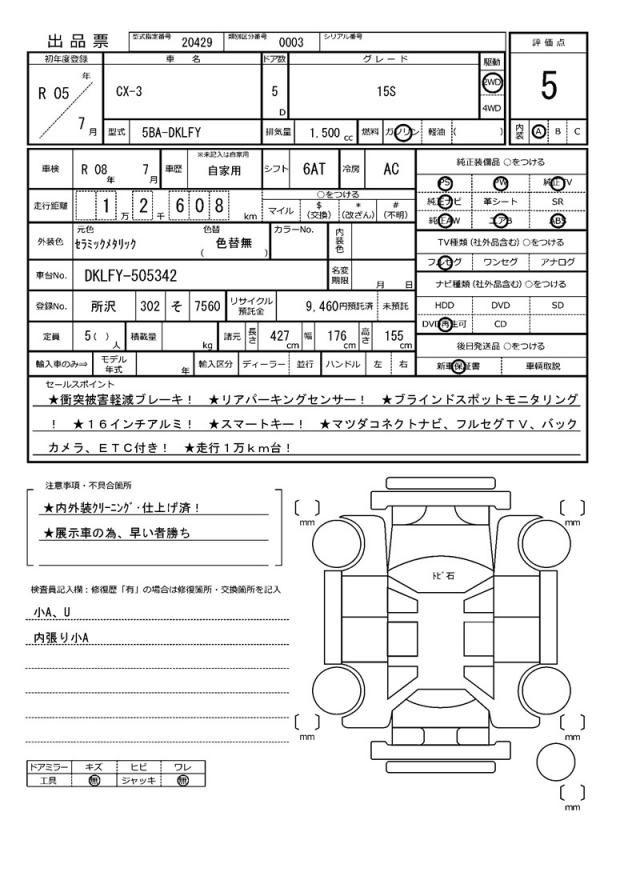 出品票 型式指定番号 20429 類別区分番号 0003 シリアル番号
評価点
5
内装 A B C
初年度登録 車名 ドア数 グレード 駆動
R 05 年 7 月 CX-3 5 D 15S 2WD 4WD
型式 5BA-DKLFY 排気量 1.500 cc 燃料 ガソリン 軽油 ( )
車検 R 08 年 7 月 車歴 ※未記入は自家用 自家用 シフト 6AT 冷房 AC
走行距離 1 万 2 千 6 0 8 km ○をつける
マイル $ (交換) * (改ざん) # (不明)
外装色 元色 セラミックメタリック 色替 ( 色替無 ) カラーNo. 内装色
車台No. DKLFY-505342 名変期限 月 日
登録No. 所沢 302 そ 7560 リサイクル預託金 9,460円預託済 未預託
定員 5( ) 人 積載量 kg 諸元 長さ 427 cm 幅 176 cm 高さ 155 cm
輸入車のみ⇒ モデル年式 年 輸入区分 ディーラー 並行 ハンドル 左 右
純正装備品 ○をつける
PS PW 純正TV
純正ナビ 革シート SR
純正AW エアB ABS
TV種類 (社外品含む) ○をつける
フルセグ ワンセグ アナログ
ナビ種類 (社外品含む) ○をつける
HDD DVD SD
DVD再生可 CD
後日発送品 ○をつける
新車保証書 車輌取説
セールスポイント
★衝突被害軽減ブレーキ! ★リアパーキングセンサー! ★ブラインドスポットモニタリング
! ★16インチアルミ! ★スマートキー! ★マツダコネクトナビ、フルセグTV、バック
カメラ、ETC付き! ★走行1万km台!
注意事項・不具合箇所
★内外装クリーニング・仕上げ済!
★展示車の為、早い者勝ち
検査員記入欄:修復歴「有」の場合は修復箇所・交換箇所を記入
小A、U
内張り小A
ドアミラー キズ ヒビ ワレ
工具 無 ジャッキ 無
[ ] mm
[ ] mm
トビ石
[ ] mm
[ ] mm
[ ] mm